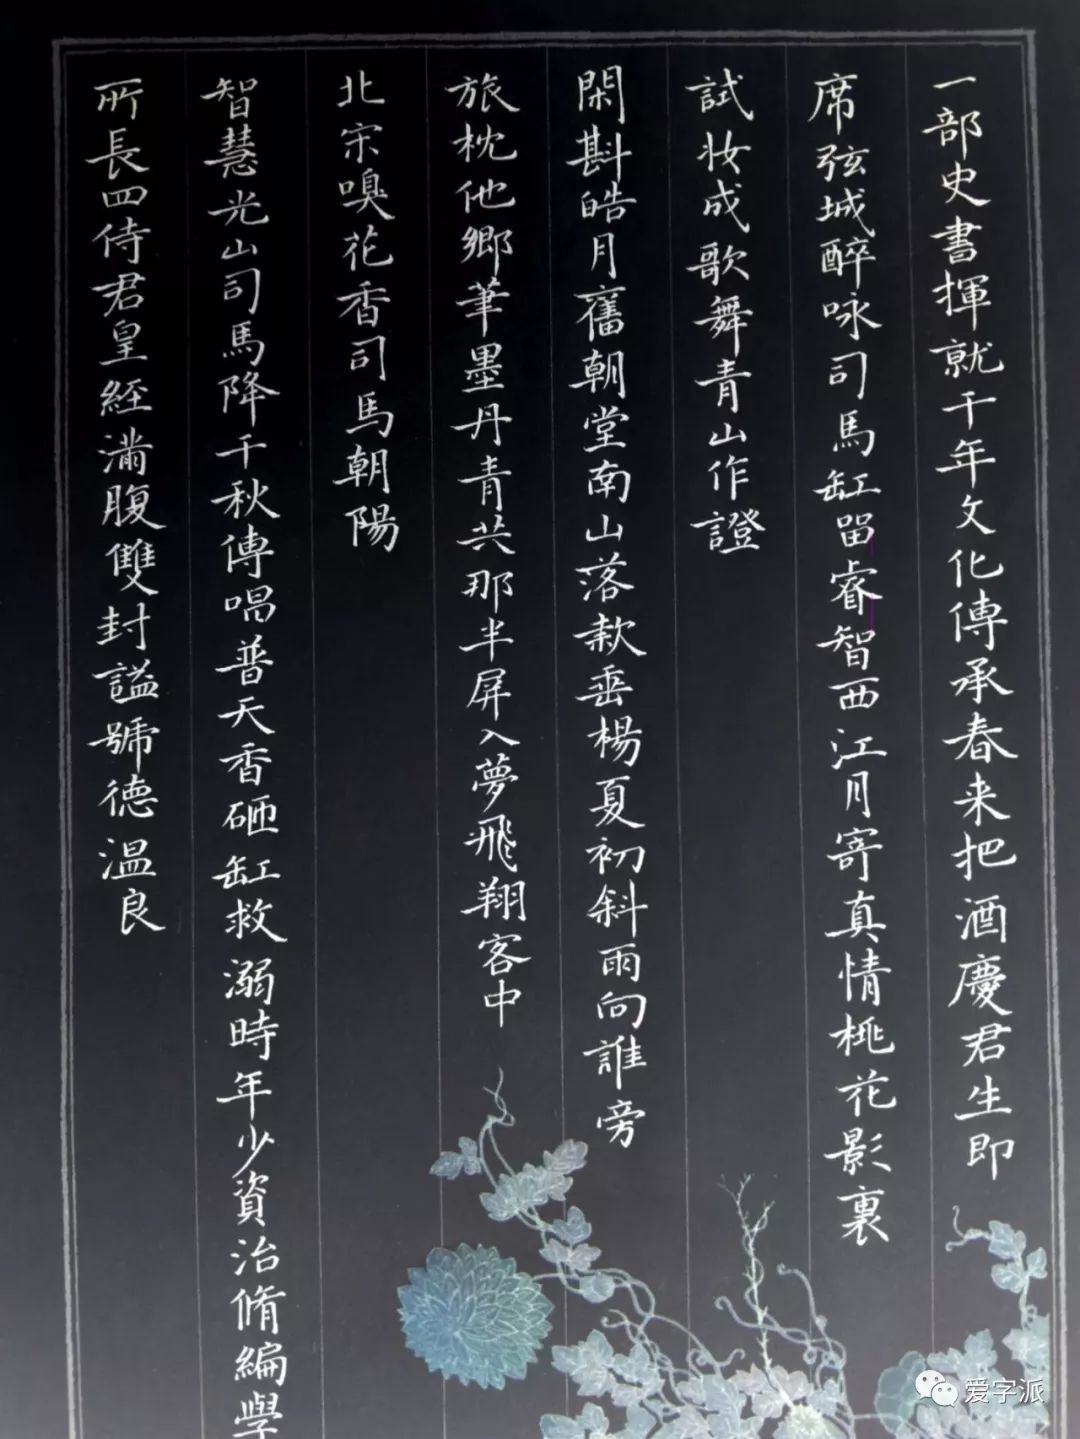 一部史書揮就千年文化傳承春来把酒慶君生即
席弦城醉咏司馬缸留睿智西江月寄真情桃花影裏
試妆成歌舞青山作證
閑斟皓月舊朝堂南山落款垂楊夏初斜雨向誰旁
旅枕他鄉筆墨丹青共那半屏入夢飛翔客中
北宋嗅花香司馬朝陽
智慧光山司馬降千秋傳唱普天香砸缸救溺時年少資治脩編學
所長四侍君皇經滿腹雙封謚號德温良
爱字派